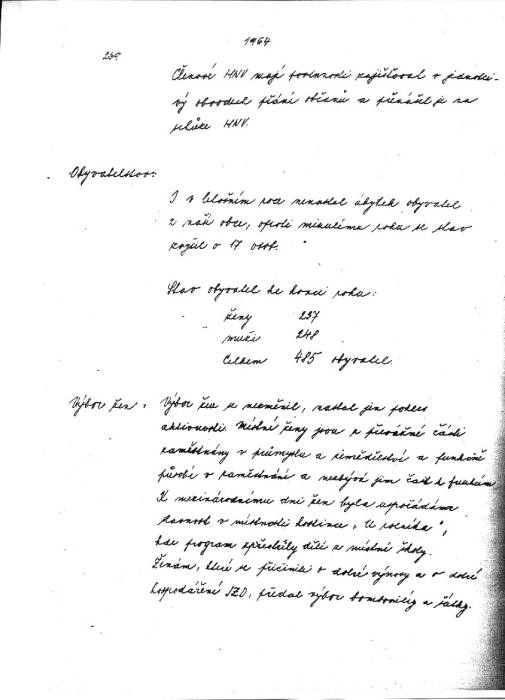 1964
239
Členové MNV mají povinnost zajišťovat v jednotli-
vý obvodech přání občanů a přenášet je na
schůze MNV.
Obyvatelstvo:
I v letošním roce nenastal úbytek obyvatel
z naší obce, oproti minulému roku se stav
zvýšil o 17 osob.
Stav obyvatel ke konci roku:
ženy 237
muži 248
Celkem 485 obyvatel.
Výbor žen: Výbor žen se nezměnil, nastal jen pokles
aktivnosti. Místní ženy jsou z převážné části
zaměstnány v průmyslu a zemědělství a funkčně
působí v zaměstnání a nezbývá jim čas k funkcím
K mezinárodnímu dni žen byla uspořádána
slavnost v místnosti hostince „U rolníka“,
kde program zpřestřily děti z místní školy.
Ženám, které se přičinily o dobré výnosy a o dobré
hospodaření JZD, předal výbor bomboniéry a šátky.